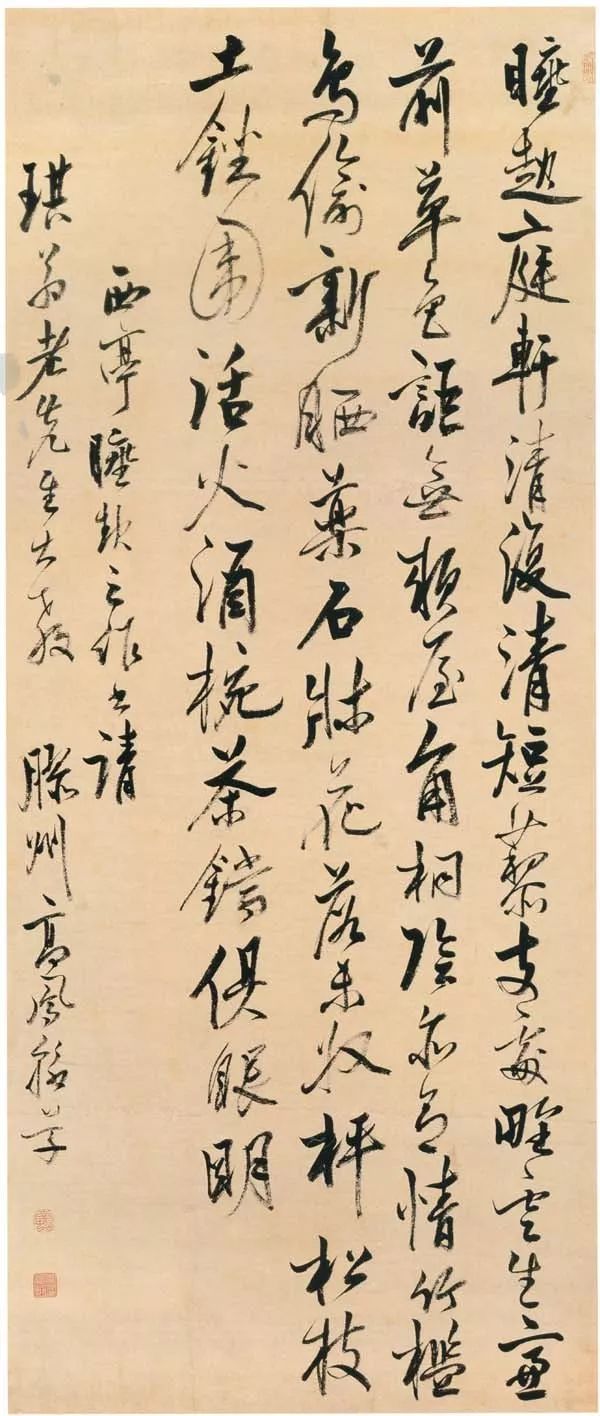 睡起庭軒清復清短藜支處野雲生簾
前草色詎無賴屋角桐陰亦有情竹檻
鳥偷新晒藥石牀花落未收枰松枝
土銼圍活火酒椀茶鐺俱眼明
西亭睡之作書請
琪翁老先生大教 膠州高鳳翰草